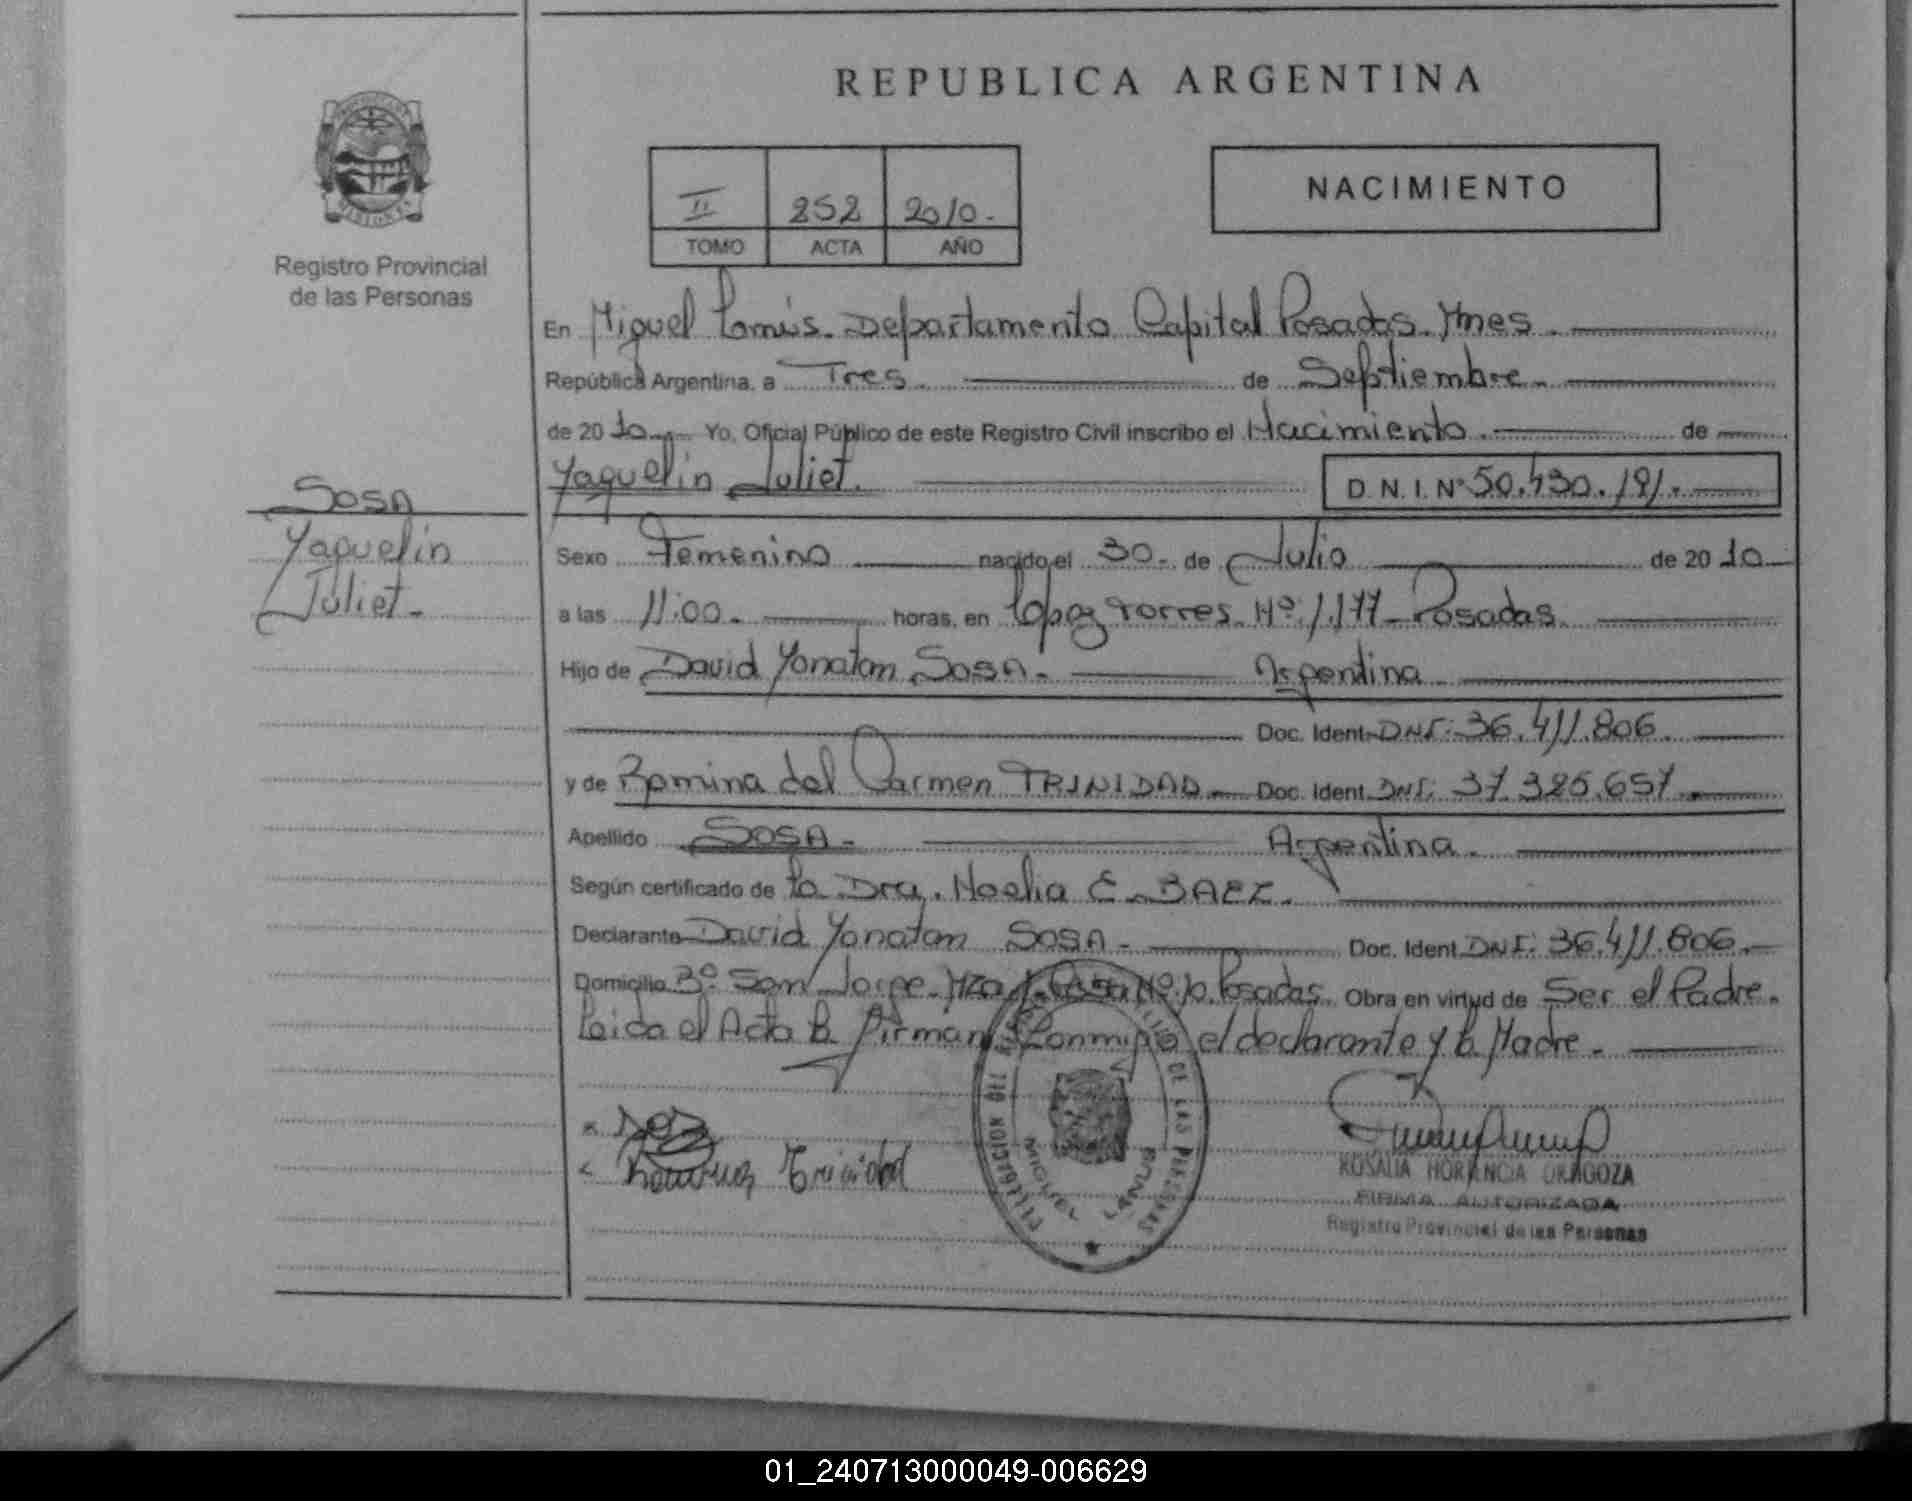 REPUBLICA ARGENTINA
II 252 2010.
TOMO ACTA AÑO
NACIMIENTO
Registro Provincial
de las Personas
En Miguel Lanús. Departamento Capital Posadas. Mnes.
República Argentina, a Tres. de Septiembre.
de 2010 Yo, Oficial Público de este Registro Civil inscribo el Nacimiento. de
Yaquelin Juliet. D.N.I. Nº 50.430.191.
SOSA
Yaquelin
Juliet.
Sexo Femenino nacido el 30. de Julio de 2010
a las 11:00. horas, en López Torres. Nº: 1.177 Posadas.
Hijo de David Yonatan SOSA. Argentina
Doc. Ident. DNI: 36.411.806.
y de Romina del Carmen TRINIDAD. Doc. Ident. DNI: 37.325.657.
Apellido SOSA. Argentina.
Según certificado de la Dra. Noelia E. BAEZ.
Declarante David Yonatan SOSA. Doc. Ident. DNI: 36.411.806.
Domicilio Bº San Jorge. Mza Casa Nº: 10. Posadas. Obra en virtud de Ser el Padre.
Leída el Acta la Firman Conmigo el declarante y la Madre.
Trinidad
DELEGACION DEL DE LAS PERSONAS
MIGUEL LANUS
ROSALIA HORTENCIA ORAGOZA
FIRMA AUTORIZADA
Registro Provincial de las Personas
01_240713000049-006629